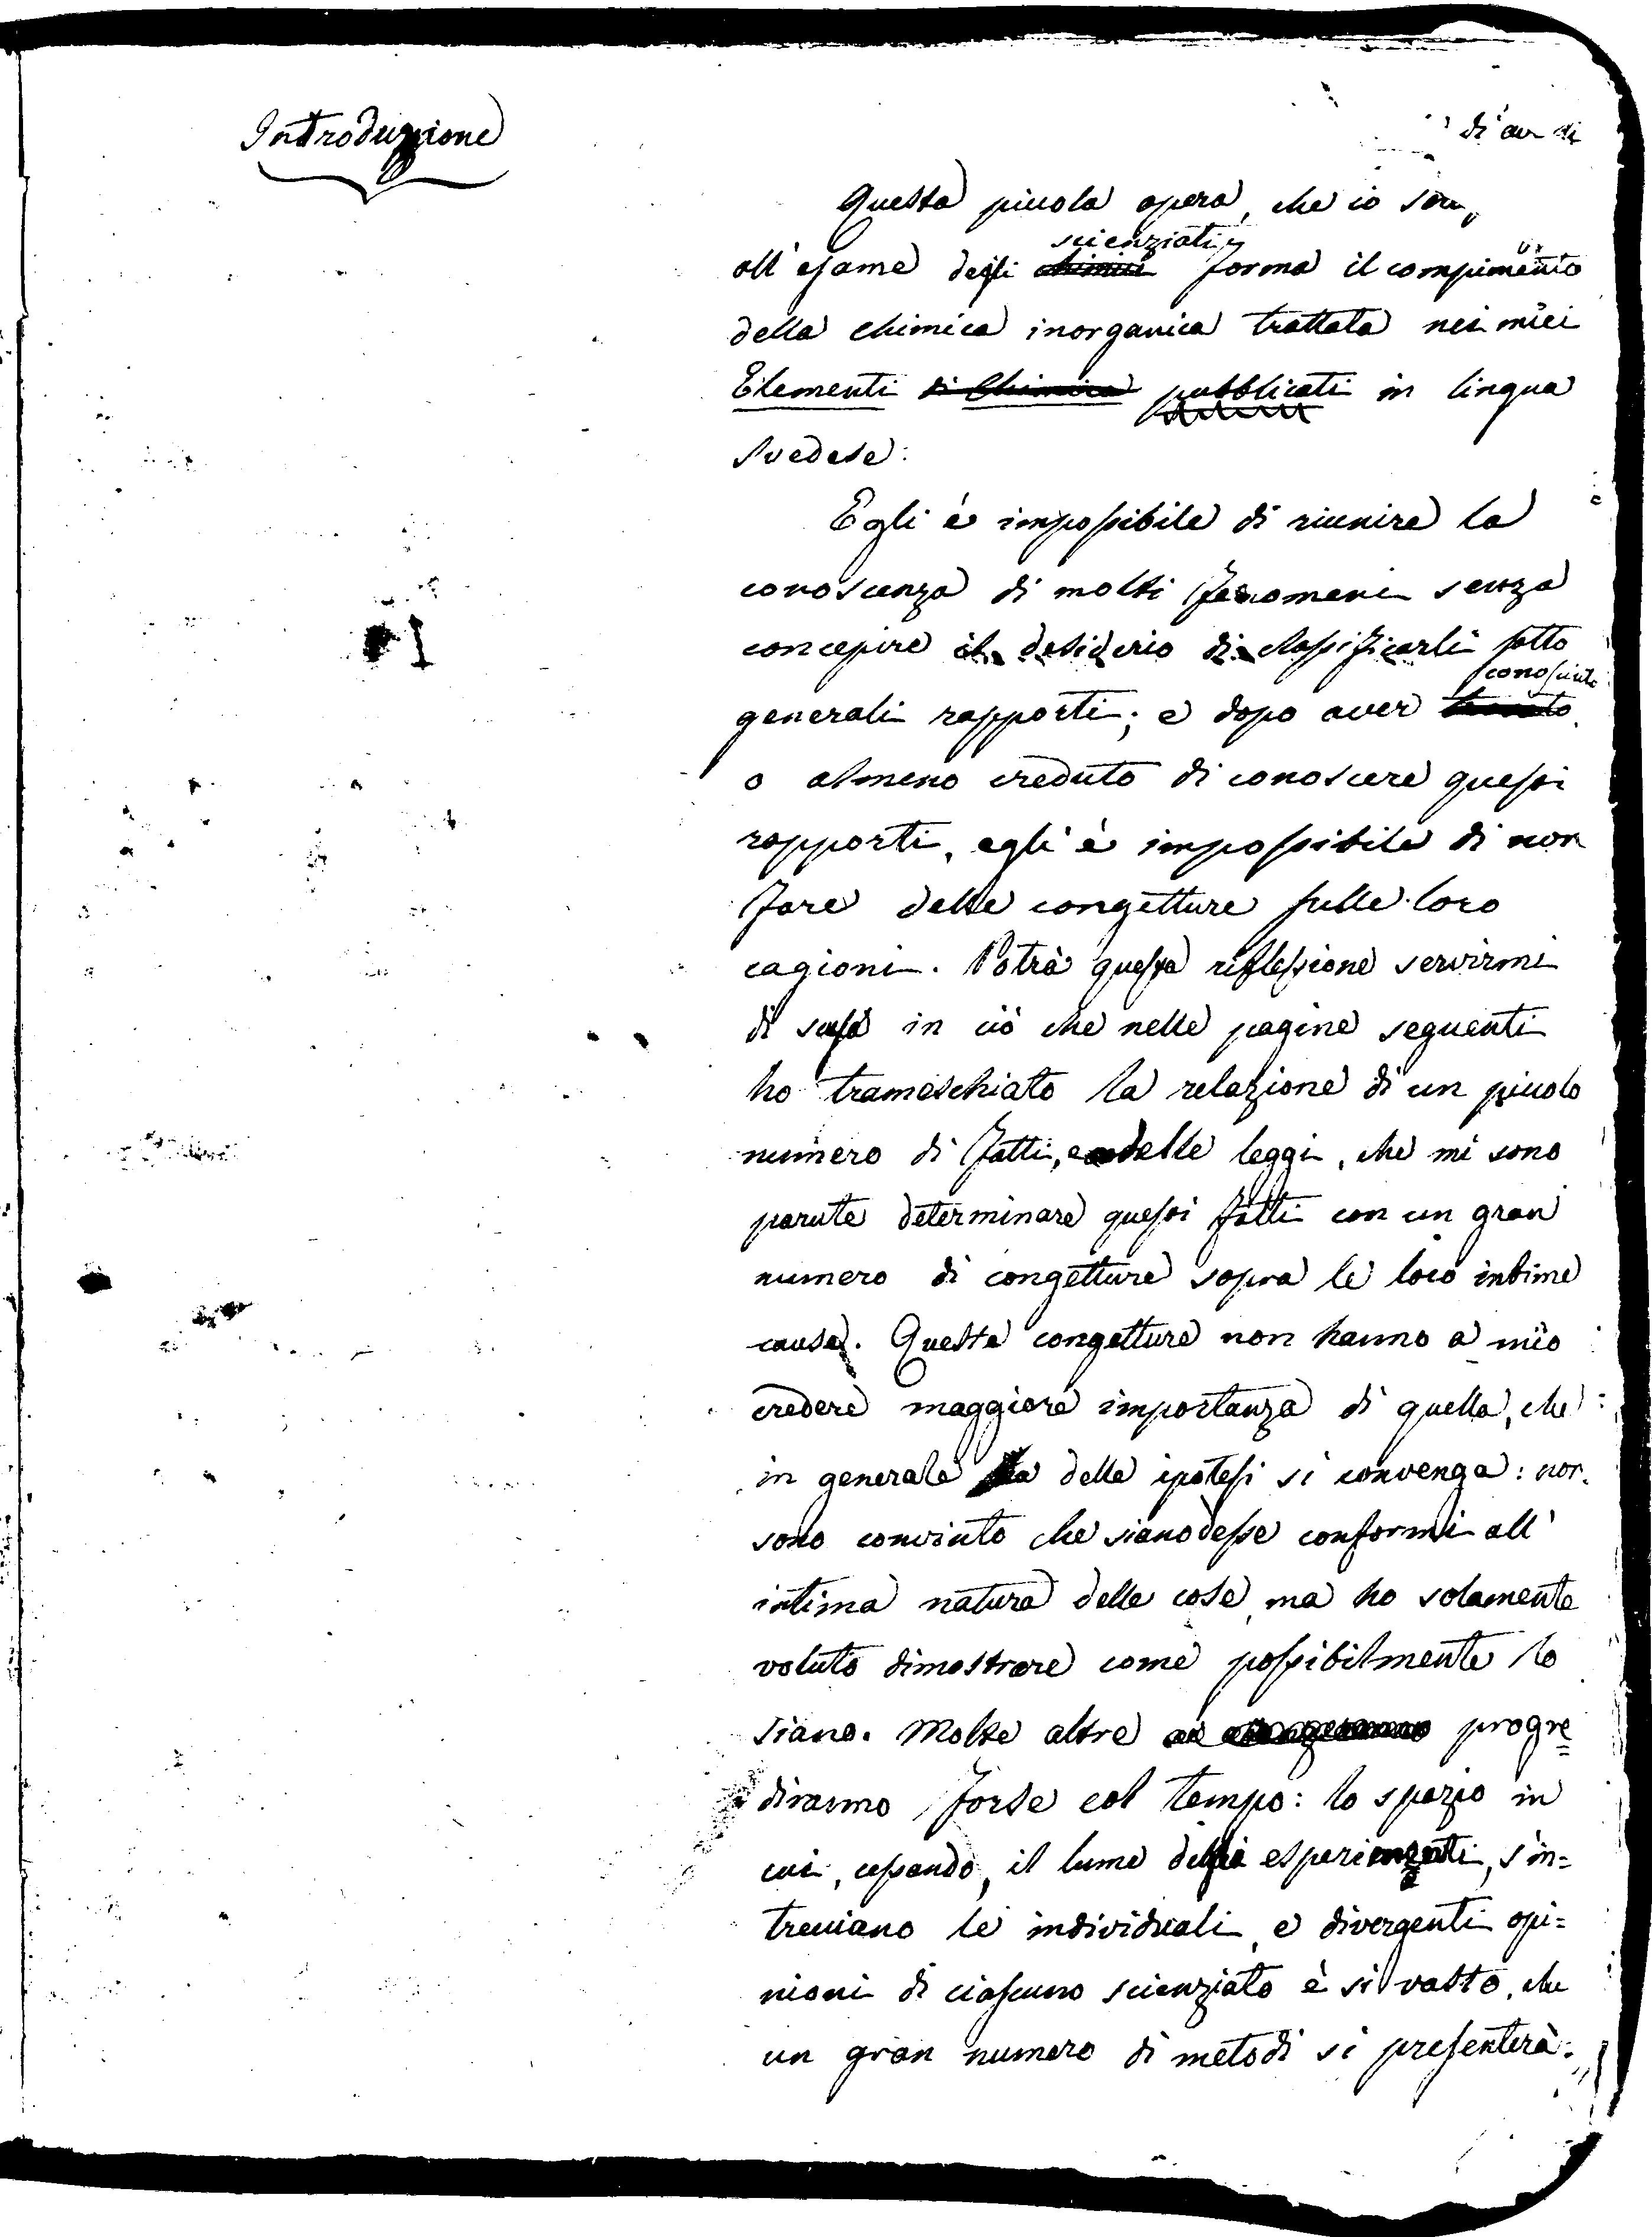 Introduzione
Questa picola opera, che io
all'esame degli scienziati forma il compimento
della chimica inorganica trattata nei miei
Elementi di Chimica pubblicati in lingua
Svedese.
Egli è impossibile di riunire la
conoscenza di molti fenomeni senza
concepire il desiderio di classificarli sotto
generali rapporti; e dopo aver conosciuto
o almeno creduto di conoscere questi
rapporti, egli è impossibile di non
fare delle congetture sulle loro
cagioni. Potrà questa riflessione servirmi
di scusa in ciò che nelle pagine seguenti
ho trameschiato la relazione di un picolo
numero di fatti, e delle leggi, che mi sono
parute determinare questi fatti con un gran
numero di congetture sopra le loro intime
cause. Queste congetture non hanno a mio
credere maggiore importanza di quella, che
in generale a delle ipotesi si convenga: non
sono convinto che siano desse conformi all'
intima natura delle cose, ma ho solamente
voluto dimostrare come possibilmente lo
siano. Molte altre progre=
diranno forse col tempo: lo spazio in
cui, cessando, il lume degli esperimenti, s'in=
treciano le individuali, e divergenti opi=
nioni di ciascuno scienziato è sì vasto, che
un gran numero di metodi si presenterà